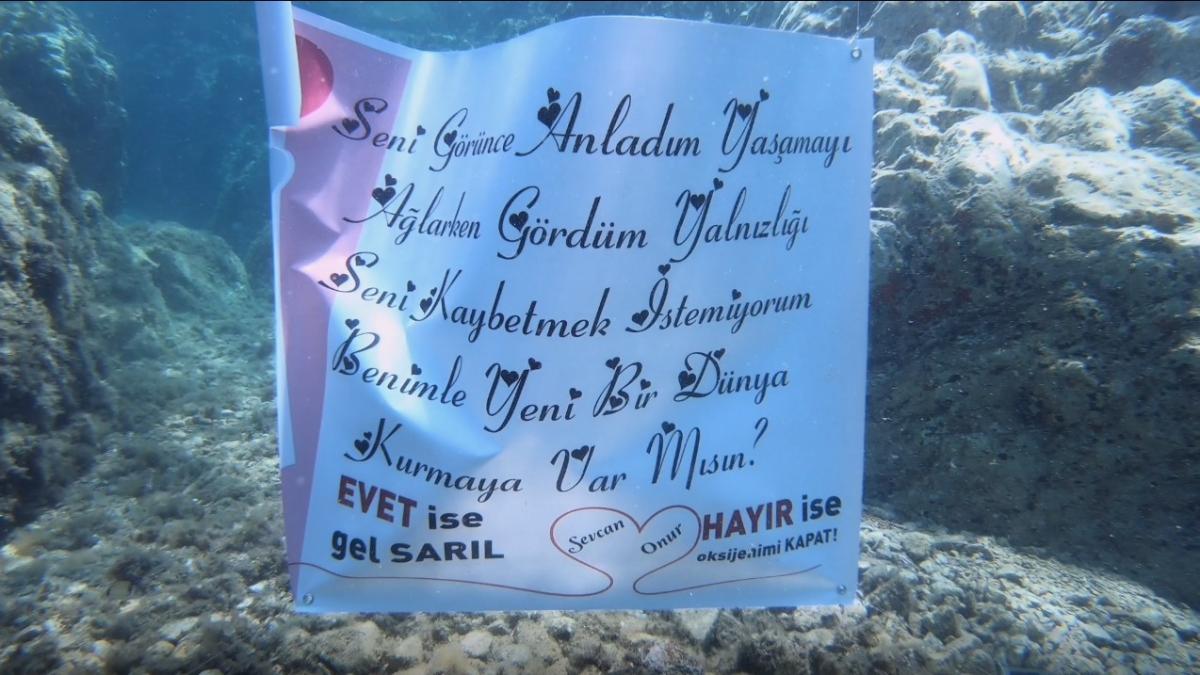 Seni Görünce Anladım Yaşamayı
Ağlarken Gördüm Yalnızlığı
Seni Kaybetmek İstemiyorum
Benimle Yeni Bir Dünya
Kurmaya Var Mısın?
EVET ise
gel SARIL
Sevcan
Onur
HAYIR ise
oksijenimi KAPAT!